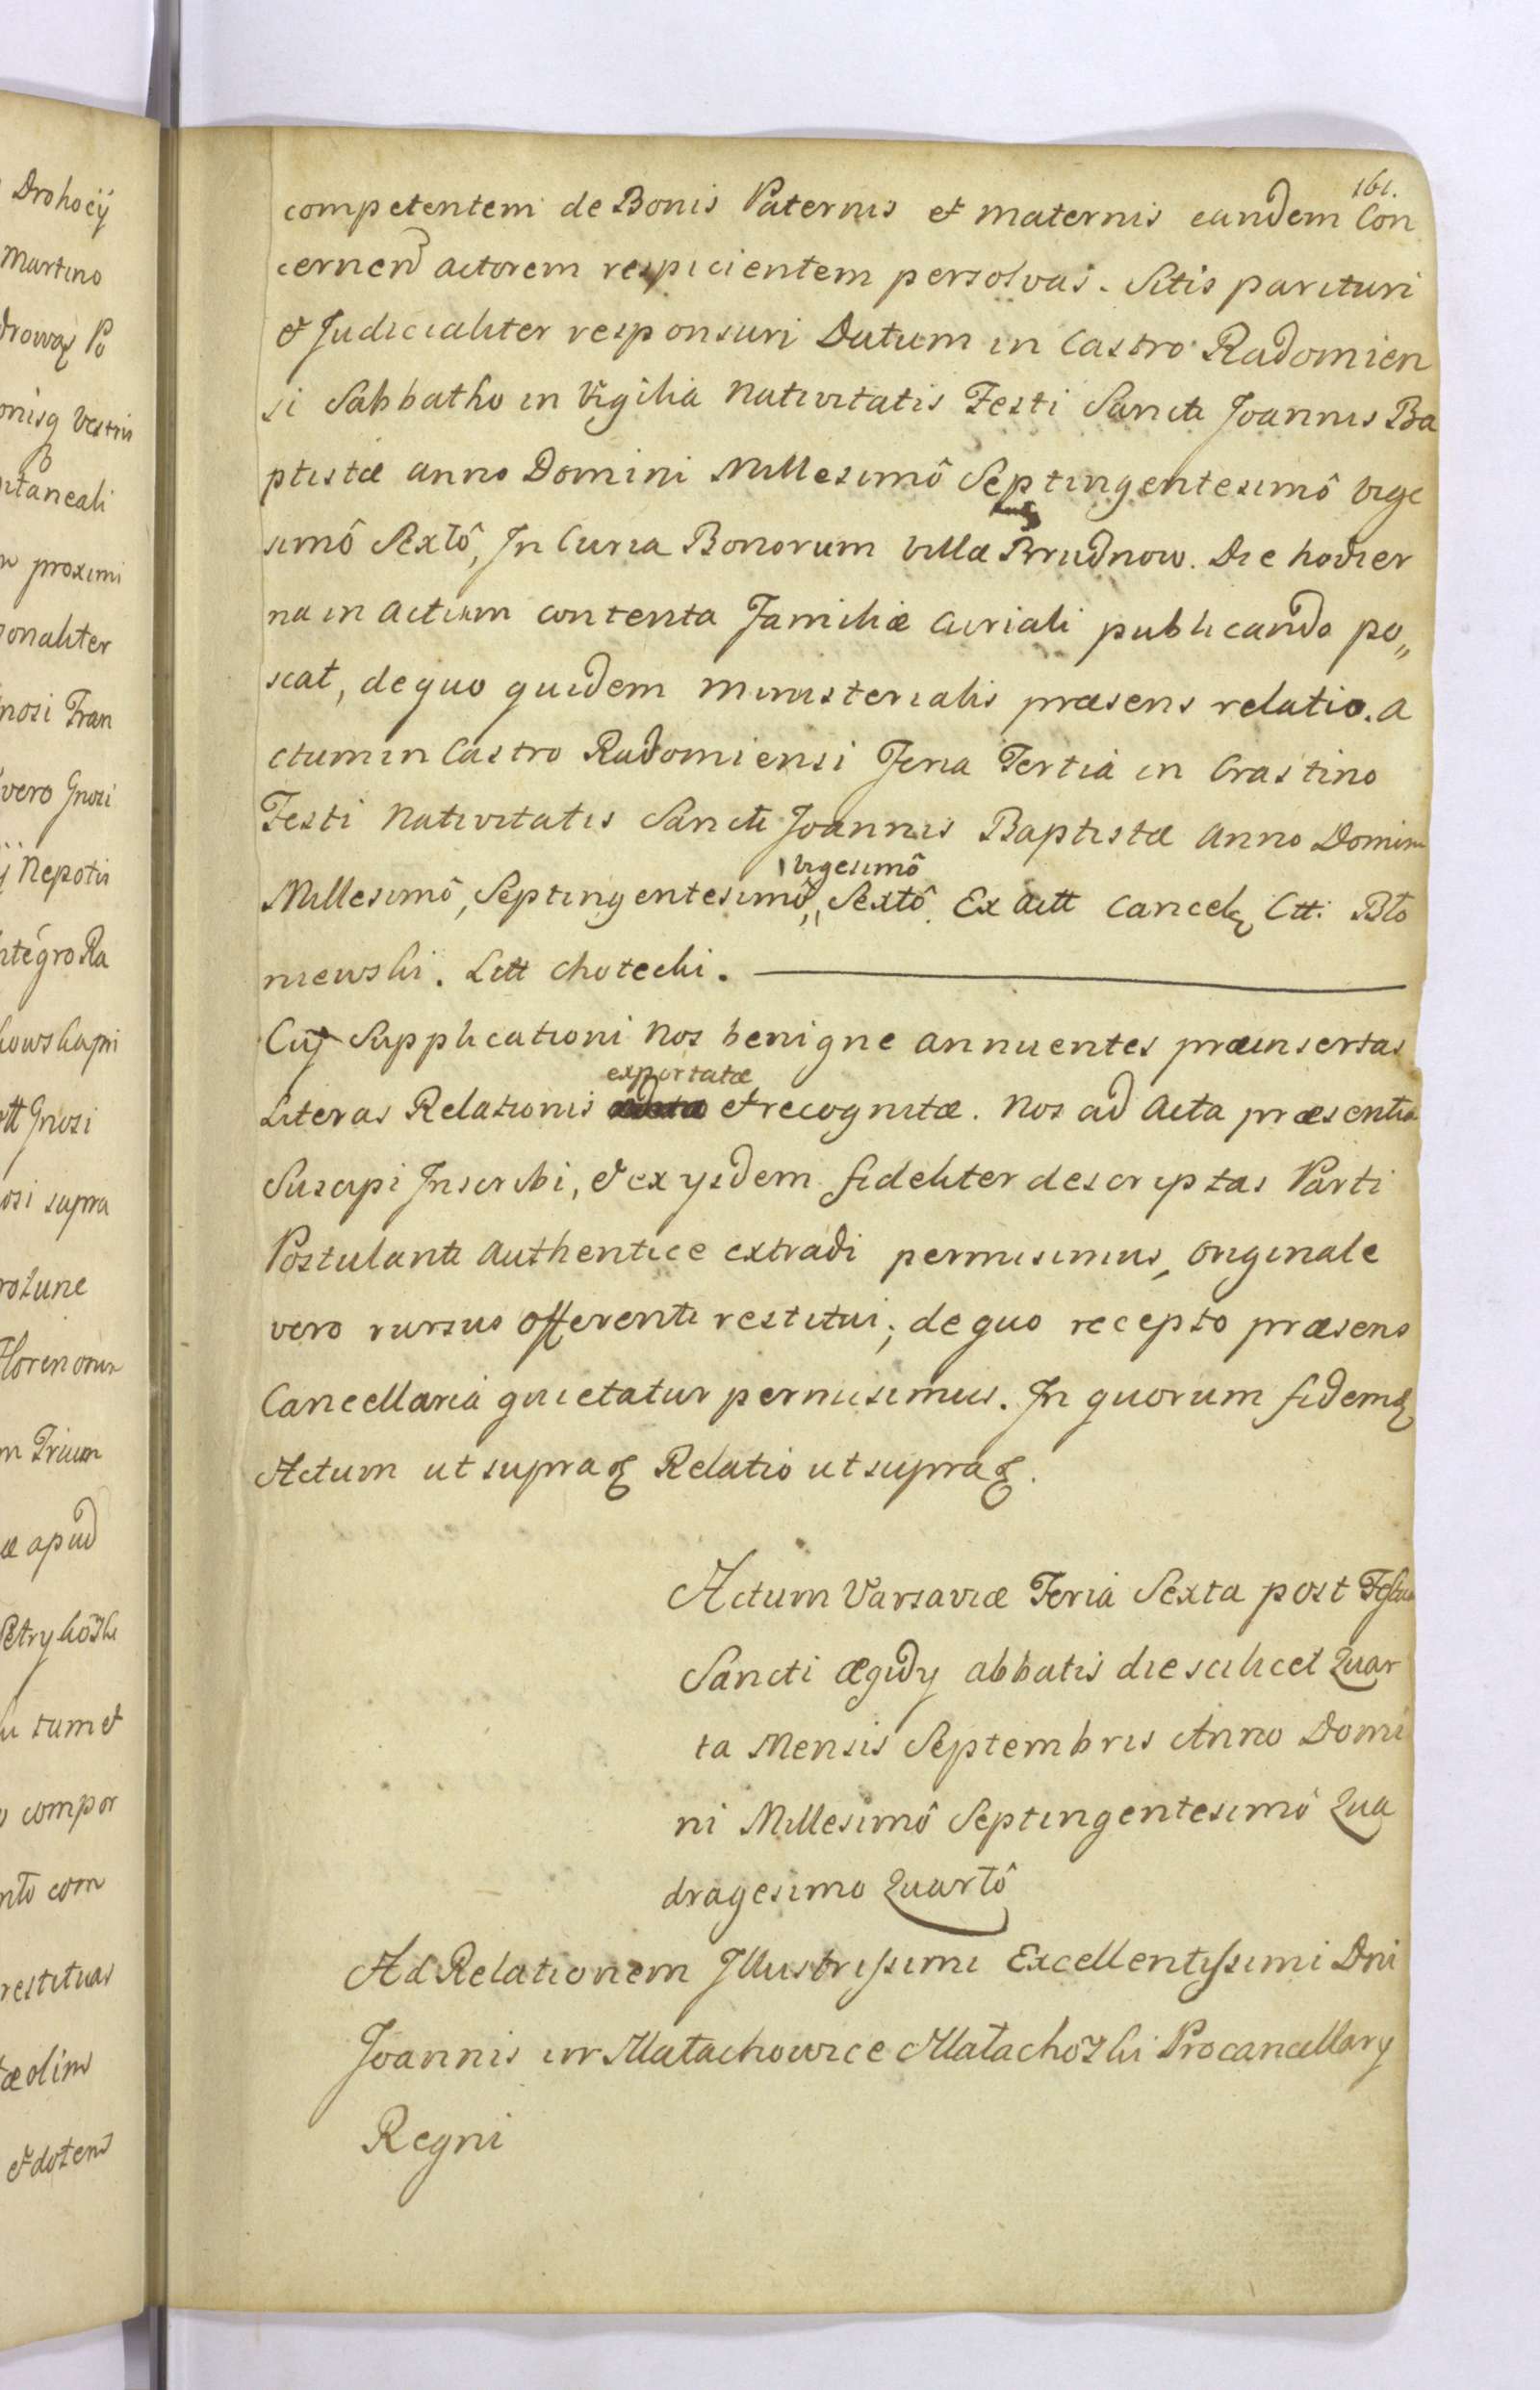 161.
competentem de Bonis Paternis et maternis eandem Con
cernen actorem respicientem persolvas. Sitis parituri
et Judicialiter responsuri Datum in Castro Radomien
si Sabbatho in Vigilia Nativitatis Festi Sancti Joannis Ba
ptistæ anno Domini Millesimô Septingentesimô vige
simô Sextô, In Curia Bonorum villæ Brudnow. Die hodier
na in actum contenta Familiæ Curiali publicando po„
scat, de quo quidem ministerialis præsens relatio. A
ctum in Castro Radomiensi Feria Tertia in Crastino
Festi Nativitatis Sancti Joannis Baptistæ Anno Domini
vigesimô
Millesimô, Septingentesimô,, Sextô. Ex Actt Cancell Ctt: Bło
niewski. Lett Chotecki.
Cuj Supplicationi Nos benigne annuentes præinsertas
exportatæ
Literas Relationis et recognitæ. Nos ad Acta præsentia
Suscipi Inscribi, et ex ysdem fideliter descriptas Parti
Postulanti Authentice extradi permisimus, originale
vero rursus offerenti restitui; de quo recepto præsens
Cancellaria quietatur permisimus. In quorum fidem
Actum ut supra Relatio ut supra.
Actum Varsaviæ Feria Sexta post Festum
Sancti Ægidy abbatis die scilicet Quar
ta Mensis Septembris Anno Domi
ni Millesimô Septingentesimô Qua
dragesimo Quartô
Ad Relationem Illustrissimi Excellentissimi Dni
Joannis in Małachowice Małachowski Procancellary
Regni
Drohocij
Martino
onisq vestris
itaneali
proximi
onaliter
nosi Fran
vero Gnosi
Nepotis
ntegro Ra
tt Gnosi
osi supra
Florenorum
m Trium
æ apud
tum et
compor
nto com
restituas
æ olim